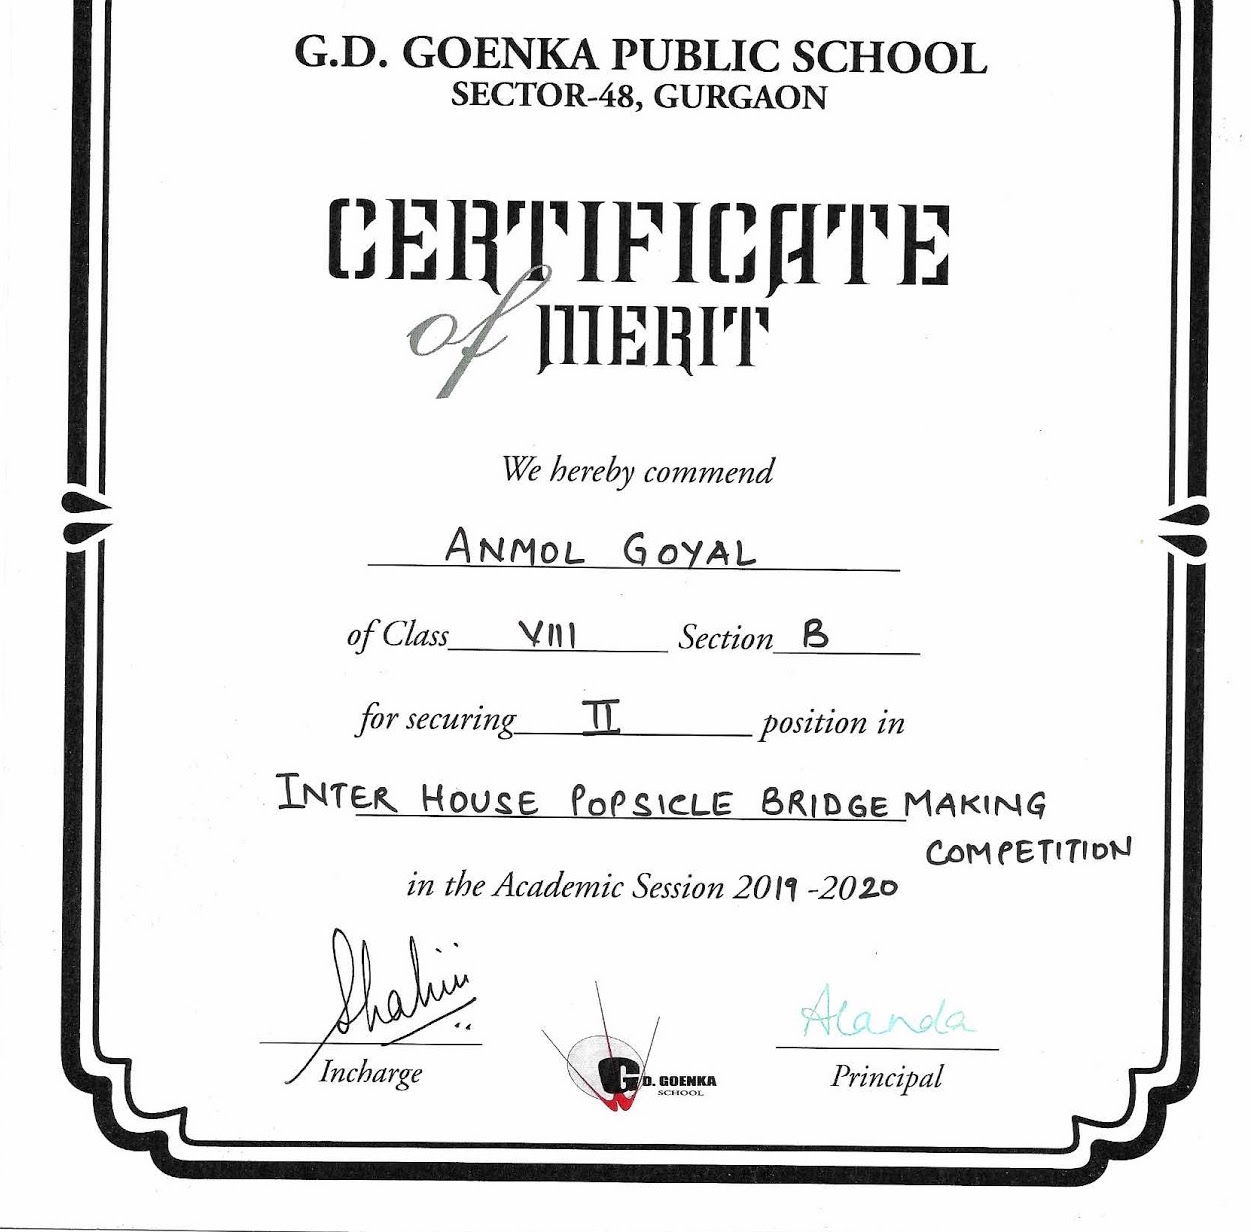 G.D. GOENKA PUBLIC SCHOOL
SECTOR-48, GURGAON
CERTIFICATE
of MERIT
We hereby commend
ANMOL GOYAL
of Class VIII Section B
for securing II position in
INTER HOUSE POPSICLE BRIDGE MAKING
COMPETITION
in the Academic Session 2019-2020
Incharge
G D. GOENKA
SCHOOL
Principal